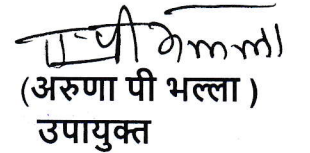 (अरुणा पी भल्ला )
उपायुक्त